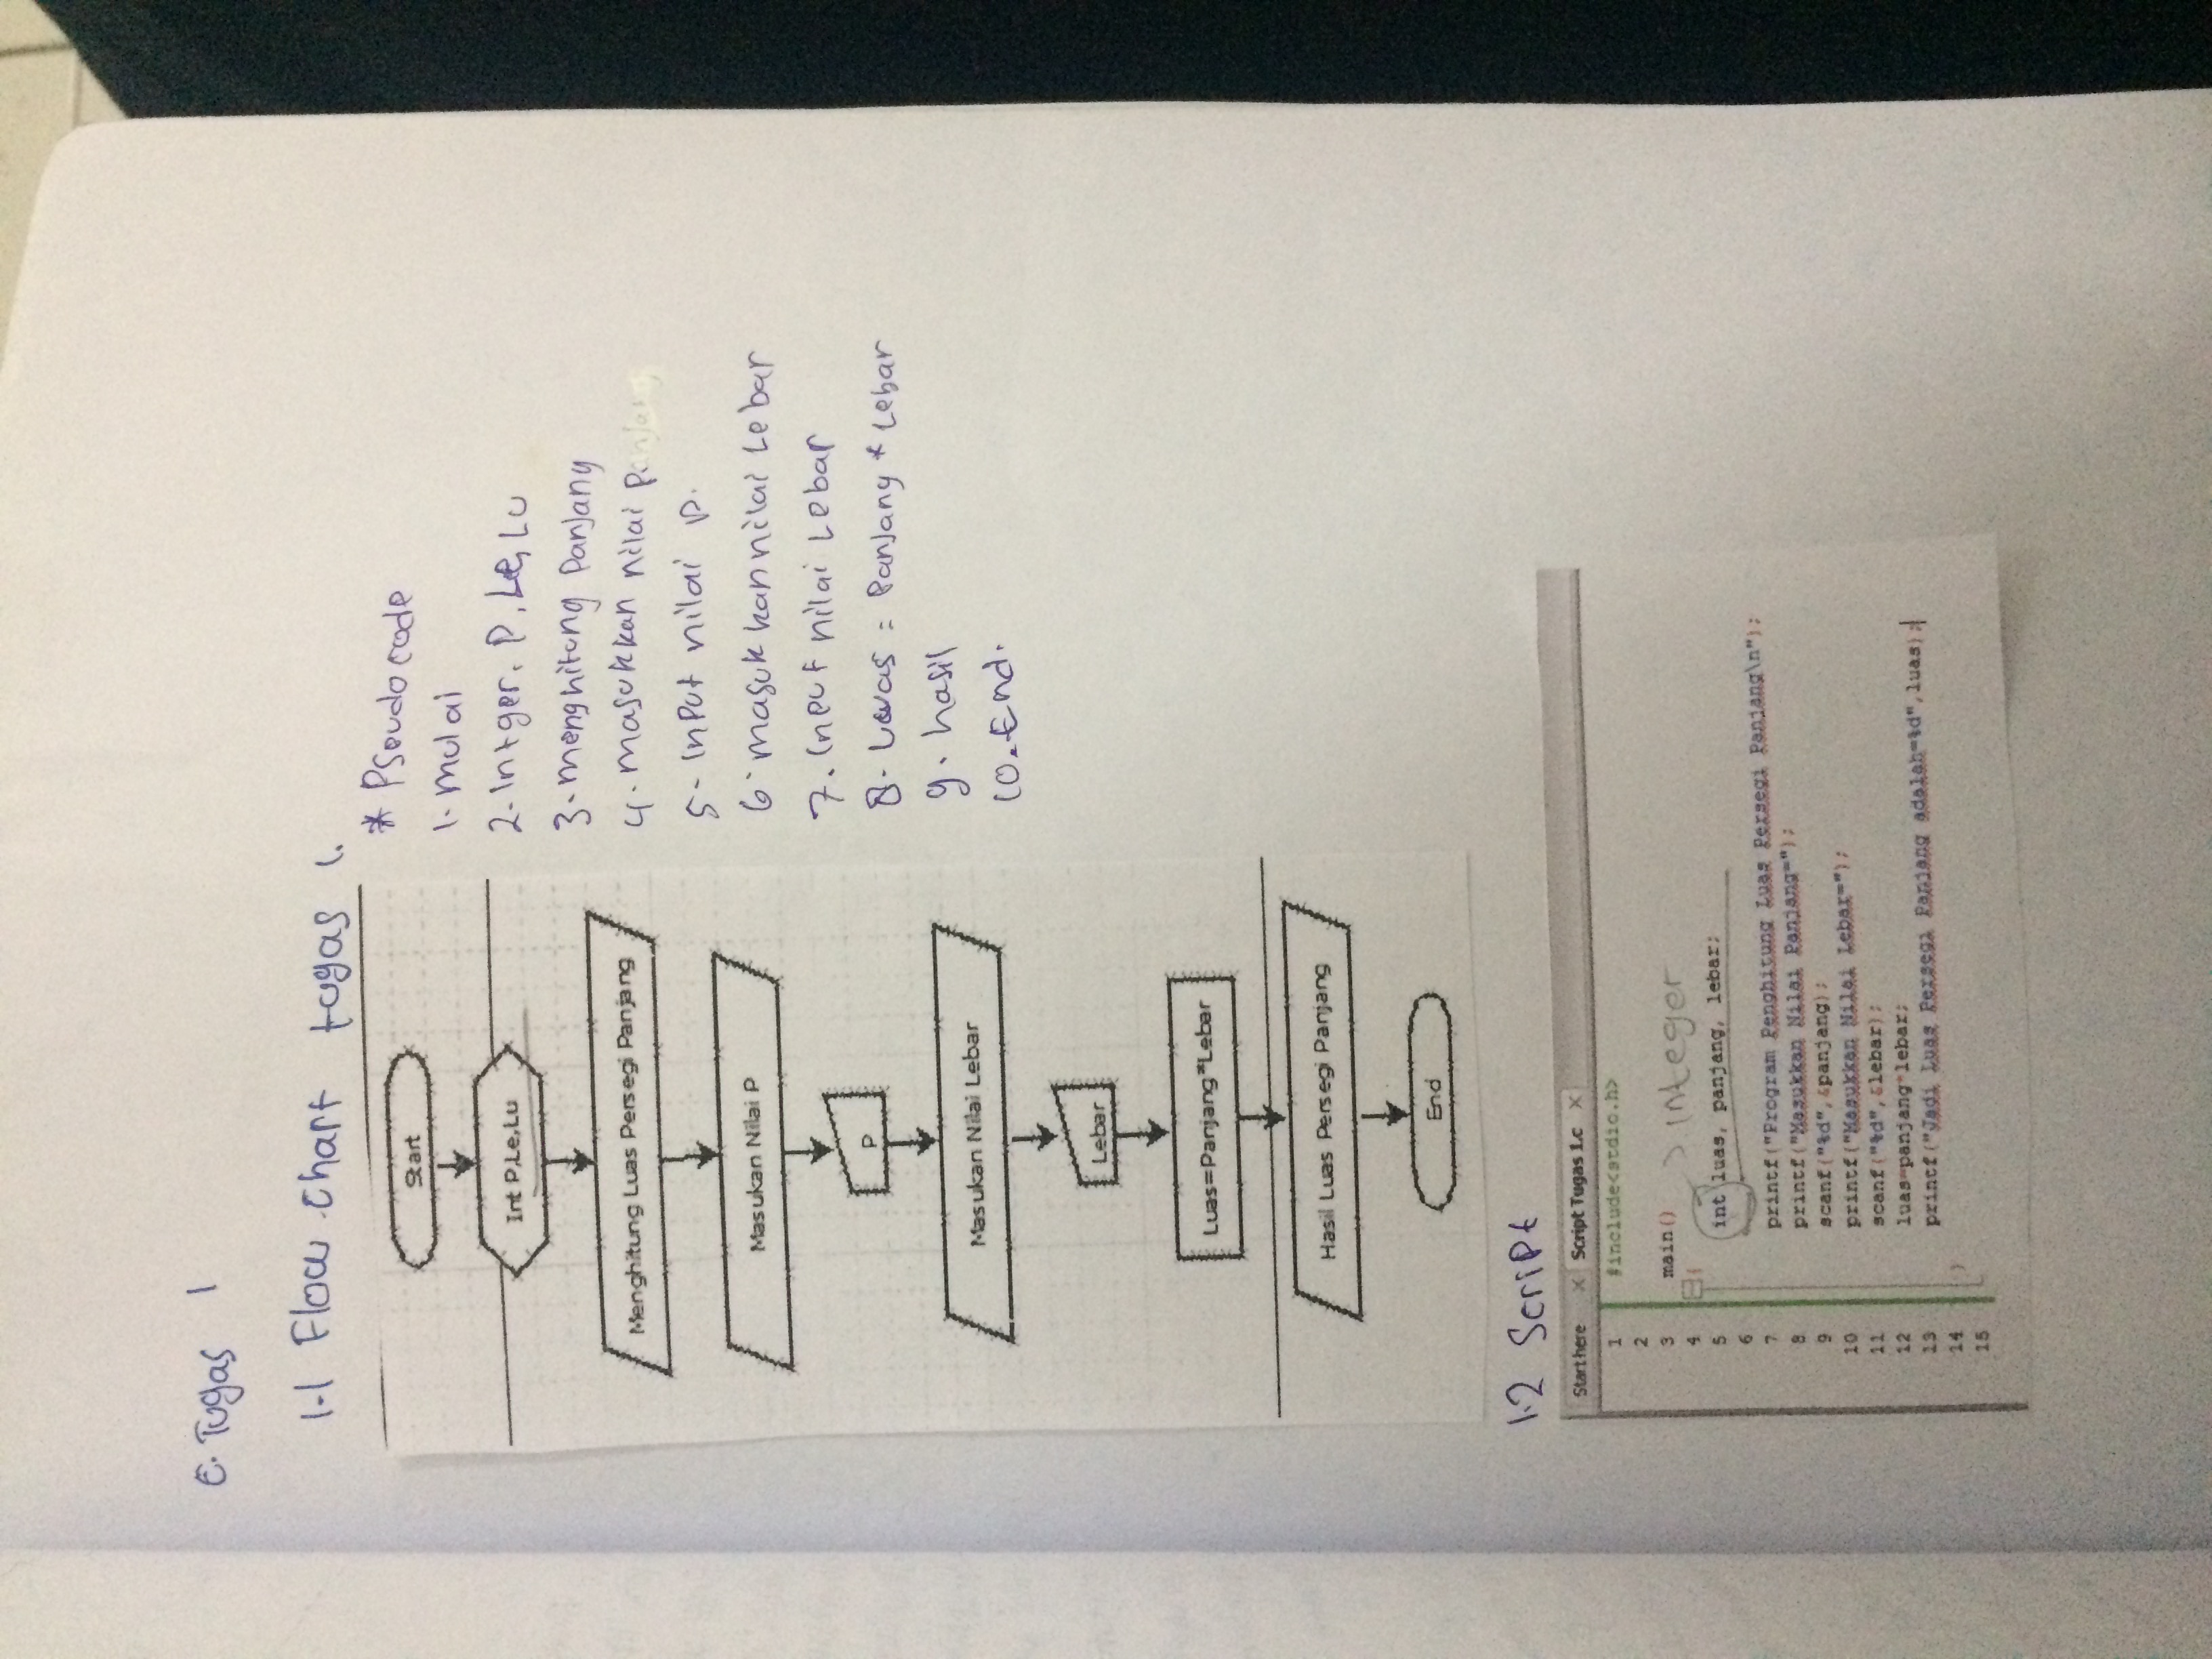 E. Tugas 1
1.1 Flow chart tugas 1.
Start
Int P,Le,Lu
Menghitung Luas Persegi Panjang
Masukan Nilai P
P
Masukan Nilai Lebar
Lebar
Luas=Panjang*Lebar
Hasil Luas Persegi Panjang
End
* Pseudocode
1. Mulai
2. Intger. P, Le, Lu
3. menghitung Panjang
4. masukkan nilai P.
5. Input nilai P.
6. masukkan nilai Lebar
7. Input nilai Lebar
8. Luas = Panjang * Lebar
9. hasil
10. End.
1.2 Script
Start here X Script Tugas 1.c X
1 #include<stdio.h>
2
3 main() > integer
4 {
5 int luas, panjang, lebar;
6
7 printf("Program Penghitung Luas Persegi Panjang\n");
8 printf("Masukkan Nilai Panjang=");
9 scanf("%d",&panjang);
10 printf("Masukkan Nilai Lebar=");
11 scanf("%d",&lebar);
12 luas=panjang*lebar;
13 printf("Jadi Luas Persegi Panjang adalah=%d",luas);
14 }
15